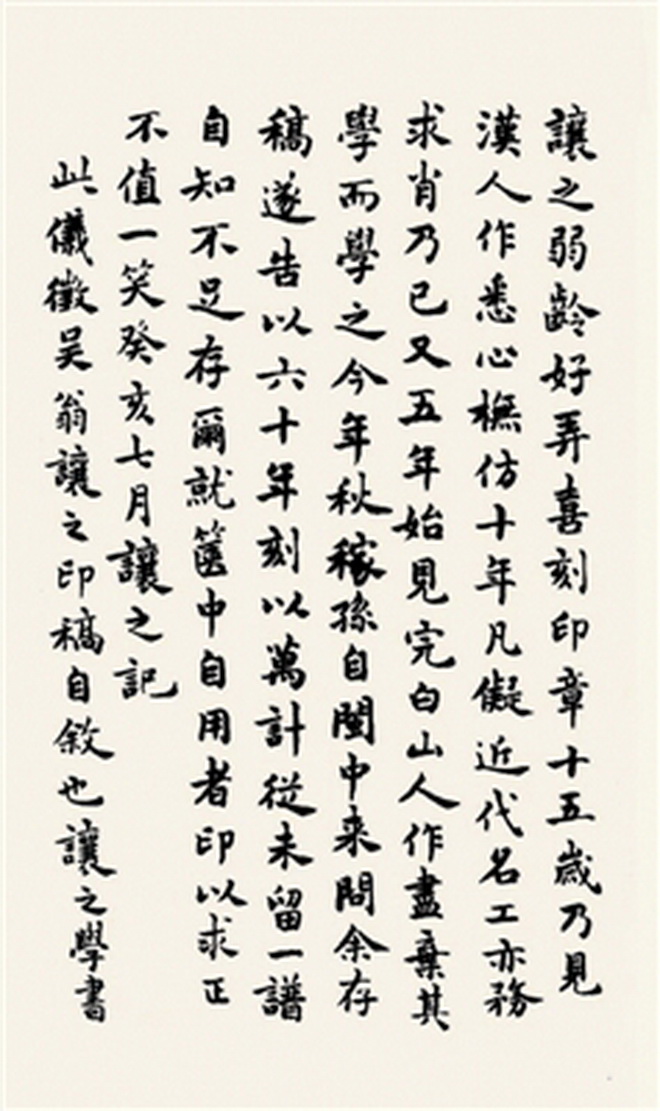 讓之弱齡好弄喜刻印章十五歲乃見
漢人作悉心橅仿十年凡儗近代名工亦務
求肖乃已又五年始見完白山人作盡棄其
學而學之今年秋稼孫自閩中来問余存
稿遂告以六十年刻以萬計從未留一譜
自知不足存爾就篋中自用者印以求正
不值一笑癸亥七月讓之記
此儀徵吴翁讓之印稿自敘也讓之學書